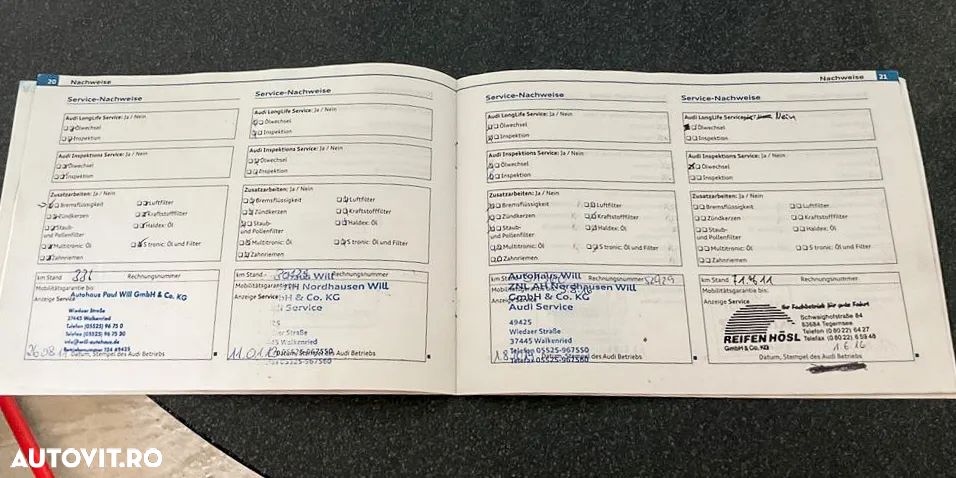 20 Nachweise
Service-Nachweise
Audi LongLife Service: Ja / Nein
Ölwechsel
Inspektion
Audi Inspektions Service: Ja / Nein
Ölwechsel
Inspektion
Zusatzarbeiten: Ja / Nein
Bremsflüssigkeit
Luftfilter
Zündkerzen
Kraftstofffilter
Staub-
und Pollenfilter
Haldex: Öl
Multitronic: Öl
S tronic: Öl und Filter
Zahnriemen
km Stand 331 Rechnungsnummer
Mobilitätsgarantie bis:
Anzeige Service
Autohaus Paul Will GmbH & Co. KG
Wiedaer Straße
37445 Walkenried
Telefon (05525) 96 75 0
Telefax (05525) 96 75 30
info@will-autohaus.de
Betriebsnummer 124 49425
Datum, Stempel des Audi Betriebs
Service-Nachweise
Audi LongLife Service: Ja / Nein
Ölwechsel
Inspektion
Audi Inspektions Service: Ja / Nein
Ölwechsel
Inspektion
Zusatzarbeiten: Ja / Nein
Bremsflüssigkeit
Luftfilter
Zündkerzen
Kraftstofffilter
Staub-
und Pollenfilter
Haldex: Öl
Multitronic: Öl
S tronic: Öl und Filter
Zahnriemen
km Stand Rechnungsnummer
Mobilitätsgarantie
Anzeige Service
Will
AH Nordhausen Will
GmbH & Co. KG
Audi Service
Walkenried
05525-967550
05525-967560
Datum, Stempel des Audi Betriebs
Nachweise 21
Service-Nachweise
Audi LongLife Service: Ja / Nein
Ölwechsel
Inspektion
Audi Inspektions Service: Ja / Nein
Ölwechsel
Inspektion
Zusatzarbeiten: Ja / Nein
Bremsflüssigkeit
Luftfilter
Zündkerzen
Kraftstofffilter
Staub-
und Pollenfilter
Haldex: Öl
Multitronic: Öl
S tronic: Öl und Filter
Zahnriemen
km Stand Rechnungsnummer 52429
Mobilitätsgarantie bis:
Anzeige Service
Autohaus Will
ZNL AH Nordhausen Will
GmbH & Co. KG
Audi Service
49425
Wiedaer Straße
37445 Walkenried
Telefon 05525-967550
Telefax 05525-967560
Datum, Stempel des Audi Betriebs
Service-Nachweise
Audi LongLife Service: Nein
Ölwechsel
Inspektion
Audi Inspektions Service: Ja / Nein
Ölwechsel
Inspektion
Zusatzarbeiten: Ja / Nein
Bremsflüssigkeit
Luftfilter
Zündkerzen
Kraftstofffilter
Staub-
und Pollenfilter
Haldex: Öl
Multitronic: Öl
S tronic: Öl und Filter
Zahnriemen
km Stand Rechnungsnummer
Mobilitätsgarantie bis:
Anzeige Service
Ihr Fachbetrieb für gute Fahrt
Schwaighofstraße 84
83684 Tegernsee
Telefon (0 80 22) 64 27
Telefax (0 80 22) 6 59 48
REIFEN HÖSL
GmbH & Co. KG
1.6.16
Datum, Stempel des Audi Betriebs
AUTOVIT.RO